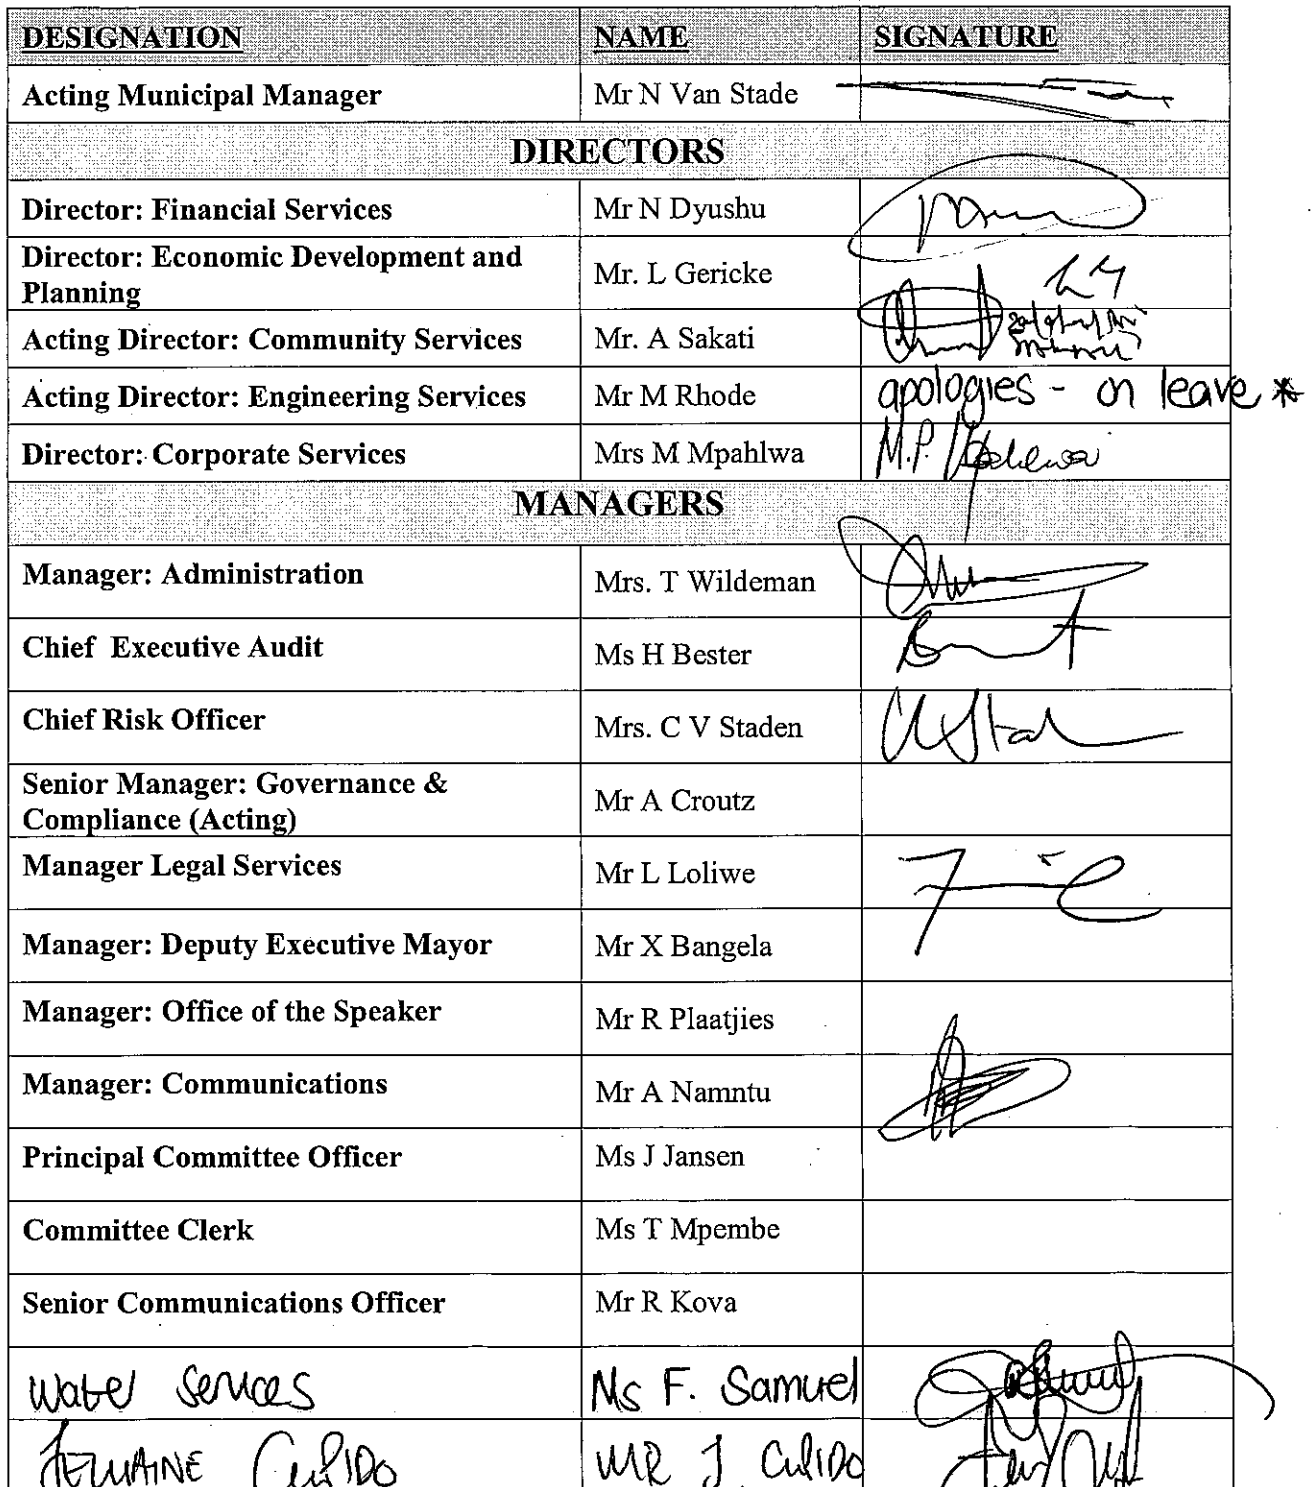 DESIGNATION NAME SIGNATURE
Acting Municipal Manager Mr N Van Stade
DIRECTORS
Director: Financial Services Mr N Dyushu
Director: Economic Development and
Planning Mr. L Gericke LG
Acting Director: Community Services Mr. A Sakati
Acting Director: Engineering Services Mr M Rhode apologies - on leave *
Director: Corporate Services Mrs M Mpahlwa M.P. Mpahlwa
MANAGERS
Manager: Administration Mrs. T Wildeman
Chief Executive Audit Ms H Bester
Chief Risk Officer Mrs. C V Staden
Senior Manager: Governance &
Compliance (Acting) Mr A Croutz
Manager Legal Services Mr L Loliwe
Manager: Deputy Executive Mayor Mr X Bangela
Manager: Office of the Speaker Mr R Plaatjies
Manager: Communications Mr A Namntu
Principal Committee Officer Ms J Jansen
Committee Clerk Ms T Mpembe
Senior Communications Officer Mr R Kova
Water Services Ms F. Samuel
JERMAINE CUPIDO MR J CUPIDO